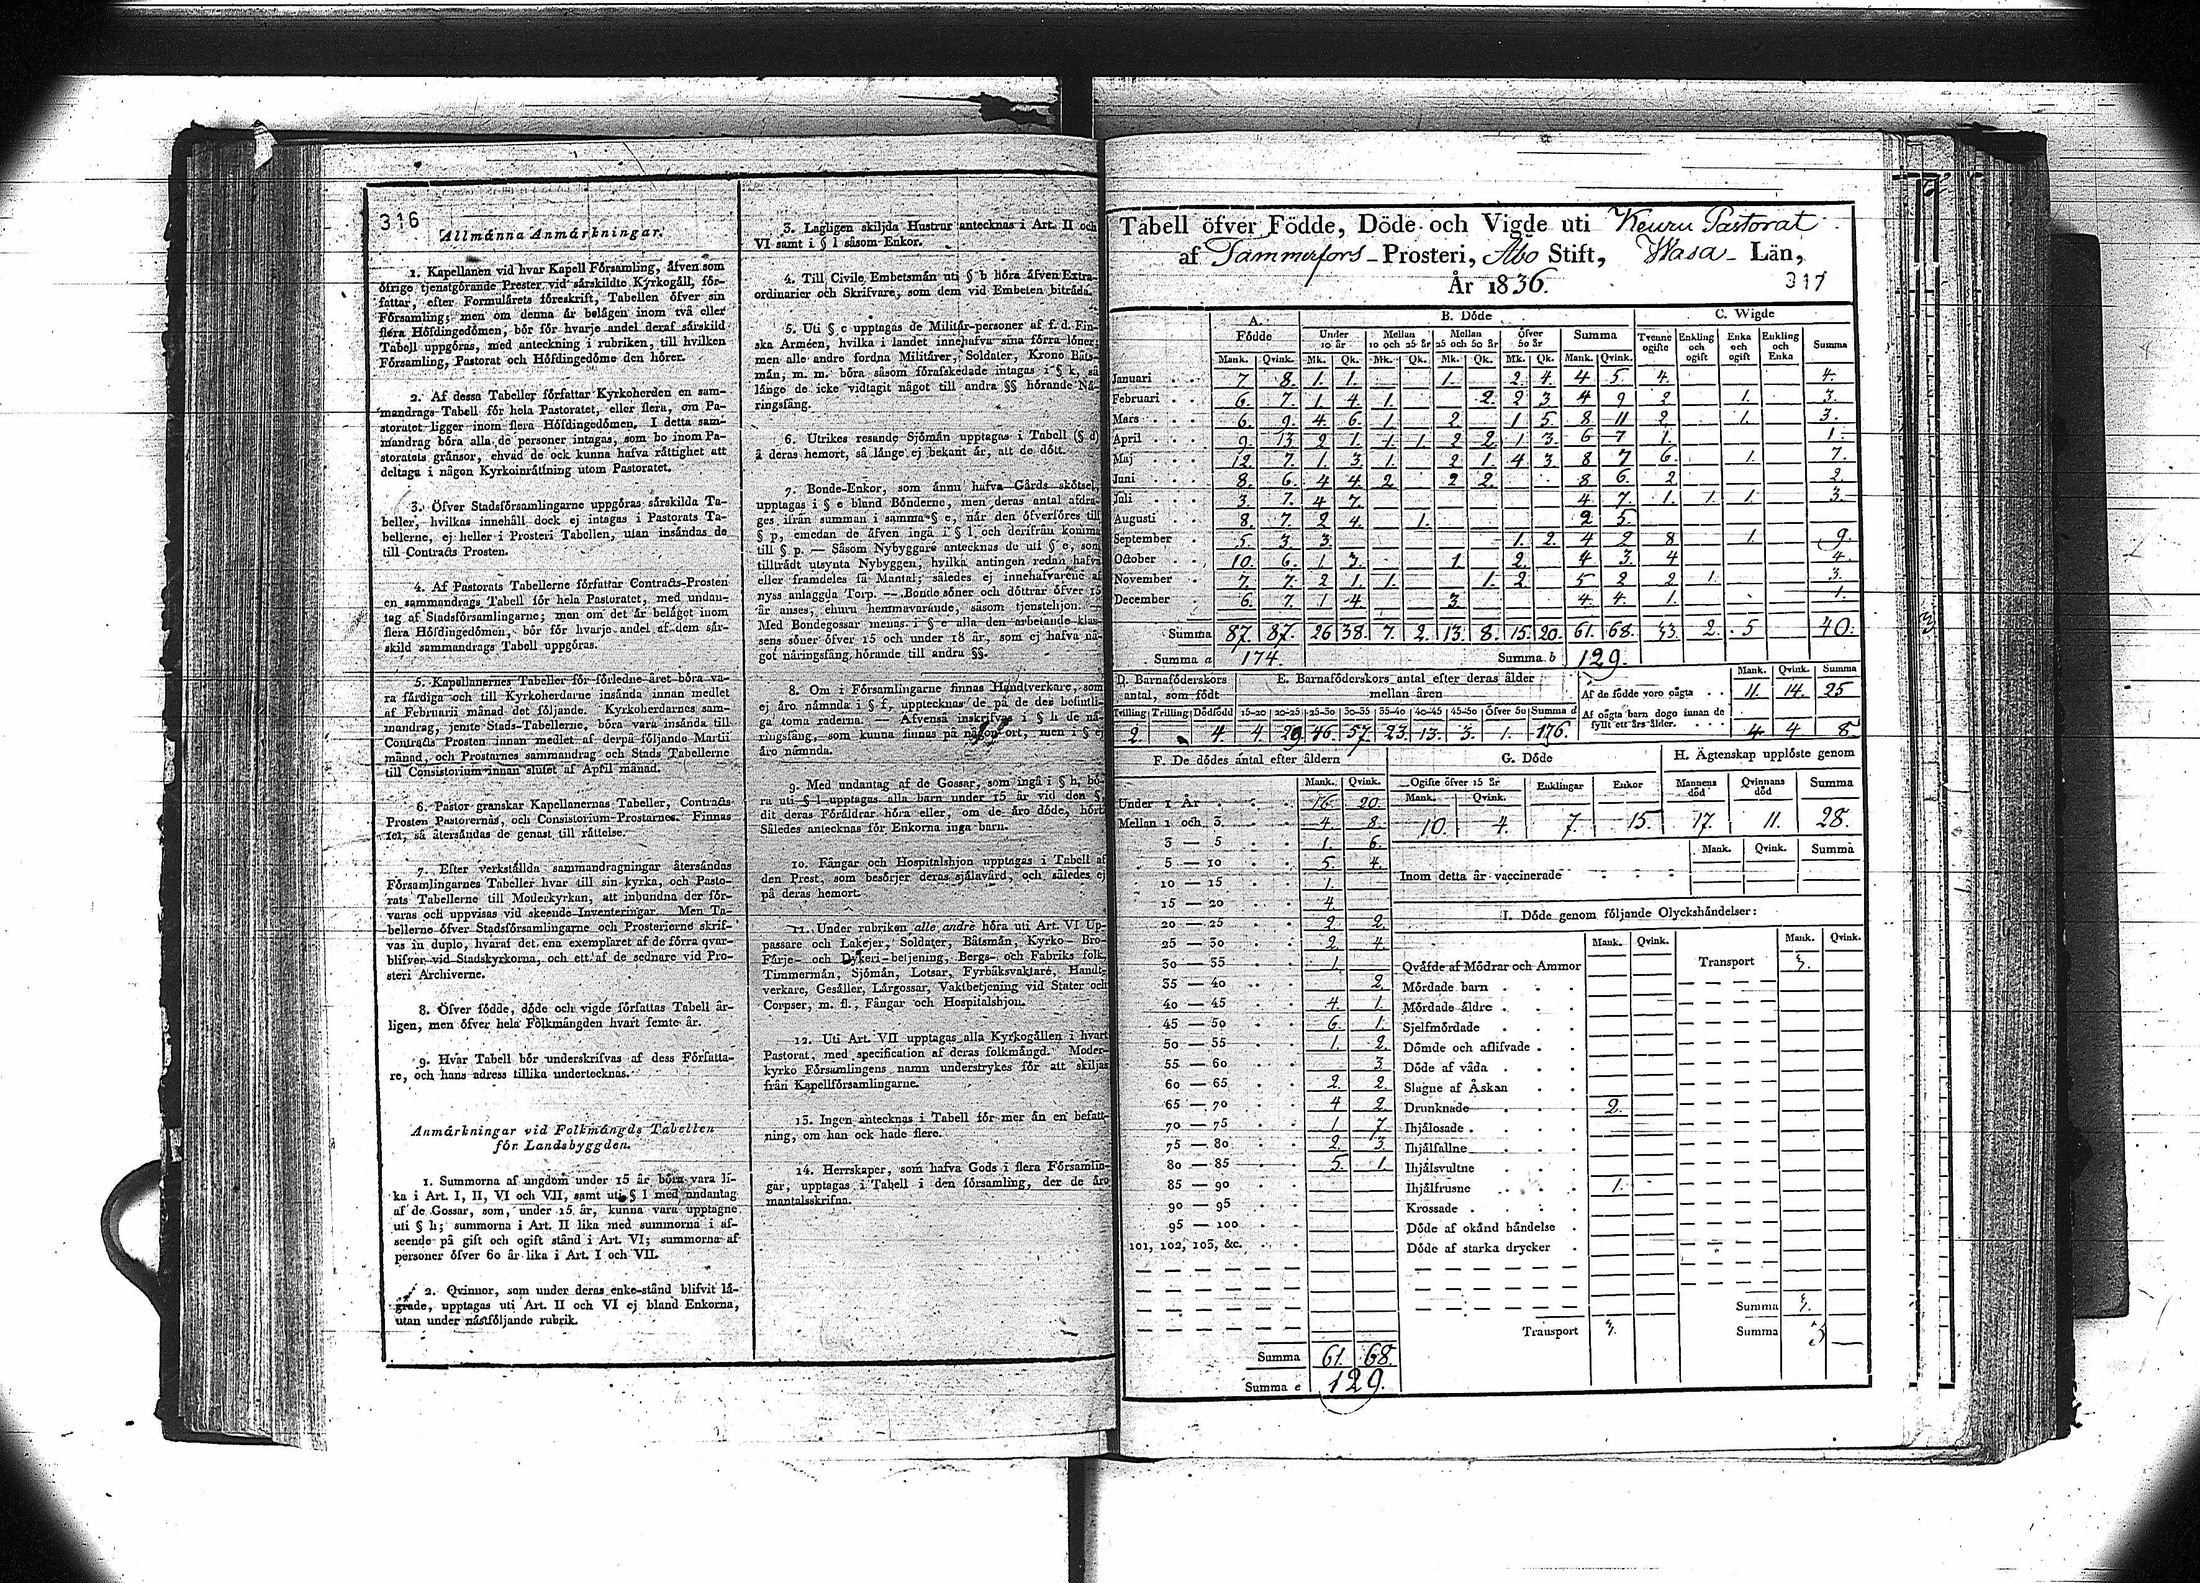 316
Allmänna Anmärkningar.
1. Kapellanen vid hvar Kapell Församling, äfven som
öfrige tjenstgörande Prester vid särskildte Kyrkogäll, för-
fattar, efter Formulärets föreskrift, Tabellen öfver sin
Församling; men om denna är belägen inom två eller
flera Höfdingedömen, bör för hvarje andel deraf särskild
Tabell uppgöras, med anteckning i rubriken, till hvilken
Församling, Pastorat och Höfdingedöme den hörer.
2. Af dessa Tabeller författar Kyrkoherden en sam-
mandrags Tabell för hela Pastoratet, eller flera, om Pa-
storatet ligger inom flera Höfdingedömen. I detta sam-
mandrag böra alla de personer intagas, som bo inom Pa-
storatets gränsor, ehvad de ock kunna hafva rättighet att
deltaga i någon Kyrkoinrättning utom Pastoratet.
3. Öfver Stadsförsamlingarne uppgöras särskilda Ta-
beller, hvilkas innehåll dock ej intagas i Pastorats Ta-
bellerne, ej heller i Prosteri Tabellen, utan insändas de
till Contracts Prosten.
4. Af Pastorats Tabellerne författar Contracts-Prosten
en sammandrags Tabell för hela Pastoratet, med undan-
tag af Stadsförsamlingarne; men om det är beläget inom
flera Höfdingedömen, bör för hvarje andel af dem sär-
skild sammandrags Tabell uppgöras.
5. Kapellanernes Tabeller för förledne året böra va-
ra färdiga och till Kyrkoherdarne insända innan medlet
af Februarii månad det följande. Kyrkoherdarnes sam-
mandrag, jemte Stads-Tabellerne, böra vara insända till
Contracts Prosten innan medlet af derpå följande Martii
månad, och Prostarnes sammandrag och Stads Tabellerne
till Consistorium innan slutet af April månad.
6. Pastor granskar Kapellanernas Tabeller, Contracts
Prosten Pastorernas, och Consistorium Prostarnes. Finnas
fel, så återsändas de genast till rättelse.
7. Efter verkställda sammandragningar återsändas
Församlingarnes Tabeller hvar till sin kyrka, och Pasto-
rats Tabellerne till Moderkyrkan, att inbundna der för-
varas och uppvisas vid skeende Inventeringar. Men Ta-
bellerne öfver Stadsförsamlingarne och Prosterierne skrif-
vas in duplo, hvaraf det ena exemplaret af de förra qvar-
blifver vid Stadskyrkorna, och ett af de sednare vid Pro-
steri Archiverne.
8. Öfver födde, döde och vigde författas Tabell år-
ligen, men öfver hela Folkmängden hvart femte år.
9. Hvar Tabell bör underskrifvas af dess Författa-
re, och hans adress tillika undertecknas.
Anmärkningar vid Folkmängds Tabellen
för Landsbyggden.
1. Summorna af ungdom under 15 år böra vara li-
ka i Art. I, II, VI och VII, samt uti § l med undantag
af de Gossar, som, under 15 år, kunna vara upptagne
uti § h; summorna i Art. II lika med summorna i af-
seende på gift och ogift stånd i Art. VI; summorna af
personer öfver 60 år lika i Art. I och VII.
2. Qvinnor, som under deras enke-stånd blifvit lä-
grade, upptagas uti Art. II och VI ej bland Enkorna,
utan under nästföljande rubrik.
3. Lagligen skiljda Hustrur antecknas i Art. II och
VI samt i § l såsom Enkor.
4. Till Civile Embetsmän uti § b höra äfven Extra-
ordinarier och Skrifvare, som dem vid Embeten biträda.
5. Uti § c upptagas de Militär-personer af f. d. Fin-
ska Arméen, hvilka i landet innehafva sina förra löner;
men alle andre fordna Militärer, Soldater, Krono Båts-
män, m. m. böra såsom förafskedade intagas i § k, så
länge de icke vidtagit något till andra §§ hörande Nä-
ringsfång.
6. Utrikes resande Sjömän upptagas i Tabell (§ d)
å deras hemort, så länge ej bekant är, att de dött.
7. Bonde-Enkor, som ännu hafva Gårds skötsel,
upptagas i § e bland Bönderne, men deras antal afdra-
ges ifrån summan i samma § e, när den öfverföres till
§ p, emedan de äfven ingå i § l och derifrån komma
till § p. — Såsom Nybyggare antecknas de uti § e, som
tillträdt utsynta Nybyggen, hvilka antingen redan hafva
eller framdeles få Mantal; således ej innehafvarene af
nyss anlaggda Torp. — Bonde söner och döttrar öfver 15
år anses, ehuru hemmavarande, såsom tjenstehjon. —
Med Bondegossar menas i § e alla den arbetande klas-
sens söner öfver 15 och under 18 år, som ej hafva nå-
got näringsfång hörande till andra §§.
8. Om i Församlingarne finnas Handtverkare, som
ej äro nämnda i § f, upptecknas de på de der befintli-
ga toma raderna. — Äfvenså inskrifvas i § h de nä-
ringsfång, som kunna finnas på någon ort, men i § ej
äro nämnda.
9. Med undantag af de Gossar, som ingå i § h, bö-
ra uti § l upptagas alla barn under 15 år vid den §,
dit deras Föräldrar höra eller, om de äro döde, hört.
Således antecknas för Enkorna inga barn.
10. Fångar och Hospitalshjon upptagas i Tabell af
den Prest, som besörjer deras själavård, och således ej
på deras hemort.
11. Under rubriken alle andre höra uti Art. VI Up-
passare och Lakejer, Soldater, Båtsmän, Kyrko- Bro-
Färje- och Dykeri-betjening, Bergs- och Fabriks folk,
Timmermän, Sjömän, Lotsar, Fyrbåksvaktare, Handt-
verkare, Gesäller, Lärgossar, Vaktbetjening vid Stater och
Corpser, m. fl., Fångar och Hospitalshjon.
12. Uti Art. VII upptagas alla Kyrkogällen i hvart
Pastorat, med specification af deras folkmängd. Moder-
kyrko Församlingens namn understrykes för att skiljas
från Kapellförsamlingarne.
13. Ingen antecknas i Tabell för mer än en befatt-
ning, om han ock hade flere.
14. Herrskaper, som hafva Gods i flera Församlin-
gar, upptagas i Tabell i den församling, der de äro
mantalsskrifna.
Tabell öfver Födde, Döde och Vigde uti Keuru Pastorat
af Tammerfors Prosteri, Åbo Stift, Wasa Län,
År 1836.
317
A. Födde B. Döde C. Wigde
Under 10 år Mellan 10 och 25 år Mellan 25 och 50 år Öfver 50 år Summa Trenne ogifte Enkling och ogift Enka och ogift Enkling och Enka Summa
Mank. Qvink. Mk. Qk. Mk. Qk. Mk. Qk. Mk. Qk. Mank. Qvink.
Januari 7 8. 1. 1. 1. 2. 4. 4 5. 4. 4.
Februari 6. 7. 1 4. 1. 2. 2 3 4 9 2 1. 3.
Mars 6. 9. 4. 6. 1 2. 1 5. 8 11 2. 1. 3.
April 9. 13. 2 1. 1 1. 2 2. 1 3. 6 7 1. 1.
Maj 12. 7. 1. 3. 1. 2 1. 4 3. 8 7 6. 1. 7.
Juni 8. 6. 4 4. 2 2 2. 8 6. 2 2.
Juli 3. 7. 4 7. 4 7. 1. 1. 1. 3.
Augusti 8. 7. 2 4. 1. 2 5.
September 5 3. 3. 1. 2. 4 2 8 1. 9.
October 10. 6. 1 3. 1 2. 4 3. 4 4.
November 7 7. 2 1. 1. 1. 2. 5 2 2 1. 3.
December 6. 7. 1 4. 3. 4. 4. 1. 1.
Summa 87. 87. 26 38. 7. 2. 13. 8. 15. 20. 61. 68. 33. 2. 5 40.
Summa a 174. Summa b 129.
D. Barnaföderskors antal, som födt
Tvilling Trilling Dödfödd
2. 4.
E. Barnaföderskors antal efter deras ålder mellan åren
15—20 20—25 25—30 30—35 35—40 40—45 45—50 Öfver 50 Summa d
4 29. 46. 57. 23. 13. 3. 1. 176.
Mank. Qvink. Summa
Af de födde voro oägta 11. 14. 25
Af oägta barn dogo innan de
fyllt ett års ålder. 4. 4 8.
F. De dödes antal efter åldern
Mank. Qvink.
Under 1 År 16 20.
Mellan 1 och 3 4. 8.
3 — 5 1. 6.
5 — 10 5. 4.
10 — 15 1.
15 — 20 4.
20 — 25 2. 2.
25 — 30 2. 4.
30 — 35 1.
35 — 40 2.
40 — 45 4. 1.
45 — 50 6. 1.
50 — 55 1. 2.
55 — 60 3
60 — 65 2. 2.
65 — 70 4 2.
70 — 75 1 7
75 — 80 2. 3.
80 — 85 5. 1.
85 — 90
90 — 95
95 — 100
101, 102, 103, &c.
Summa 61. 68.
Summa e 129.
G. Döde
Ogifte öfver 15 år Enklingar Enkor
Mank. Qvink.
10. 4. 7. 15.
H. Ägtenskap upplöste genom
Mannens död Qvinnans död Summa
17. 11. 28.
Mank. Qvink. Summa
Inom detta år vaccinerade
I. Döde genom följande Olyckshändelser:
Mank. Qvink.
Qväfde af Mödrar och Ammor
Mördade barn
Mördade äldre
Sjelfmördade
Dömde och aflifvade
Döde af våda
Slagne af Åskan
Drunknade 2.
Ihjälosade
Ihjälfallne
Ihjälsvultne
Ihjälfrusne 1.
Krossade
Döde af okänd händelse
Döde af starka drycker
Transport 3.
Mank. Qvink.
Transport 3.
Summa 3.
Summa 3